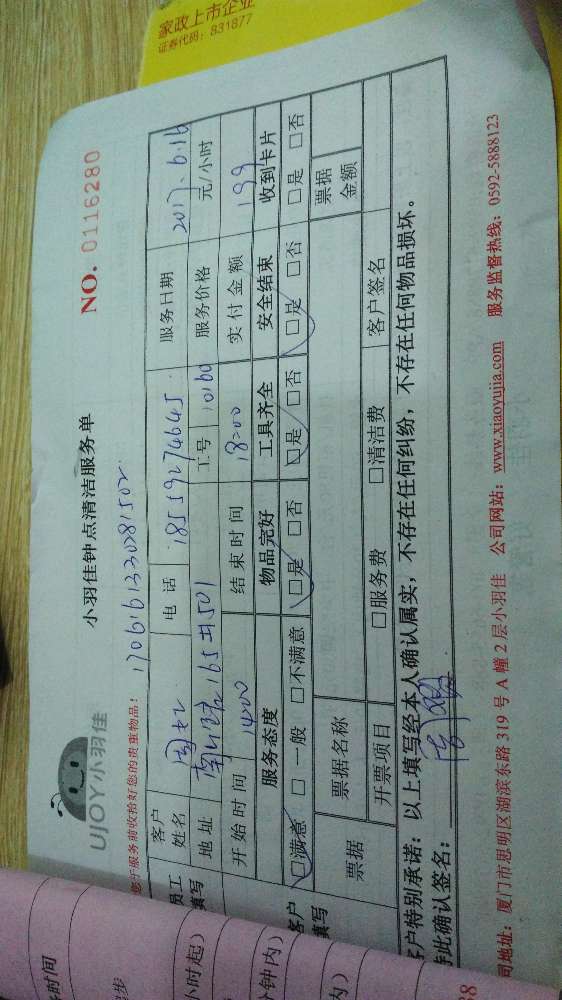 家政上市企业
证券代码：831877
NO. 0116280
小羽佳钟点清洁服务单
UJOY小羽佳
1706161330281502
您于服务前收拾好您的贵重物品！
员工填写
客户姓名 周女士 电话 18559274645 服务日期 2017.6.16
地址 165号501 工号 10160 服务价格 元/小时
开始时间 14:00 结束时间 18:00 实付金额 199
客户填写
服务态度 物品完好 工具齐全 安全结束 收到卡片
□满意 □一般 □不满意 □是 □否 □是 □否 □是 □否 □是 □否
票据 票据名称 票据金额
开票项目 □服务费 □清洁费 客户签名
客户特别承诺：以上填写经本人确认属实，不存在任何纠纷，不存在任何物品损坏。
特此确认签名：
司地址：厦门市思明区湖滨东路319号A幢2层小羽佳 公司网站：www.xiaoyujia.com 服务监督热线：0592-5888123
时间
步
小时起）
分钟内）
内）
88